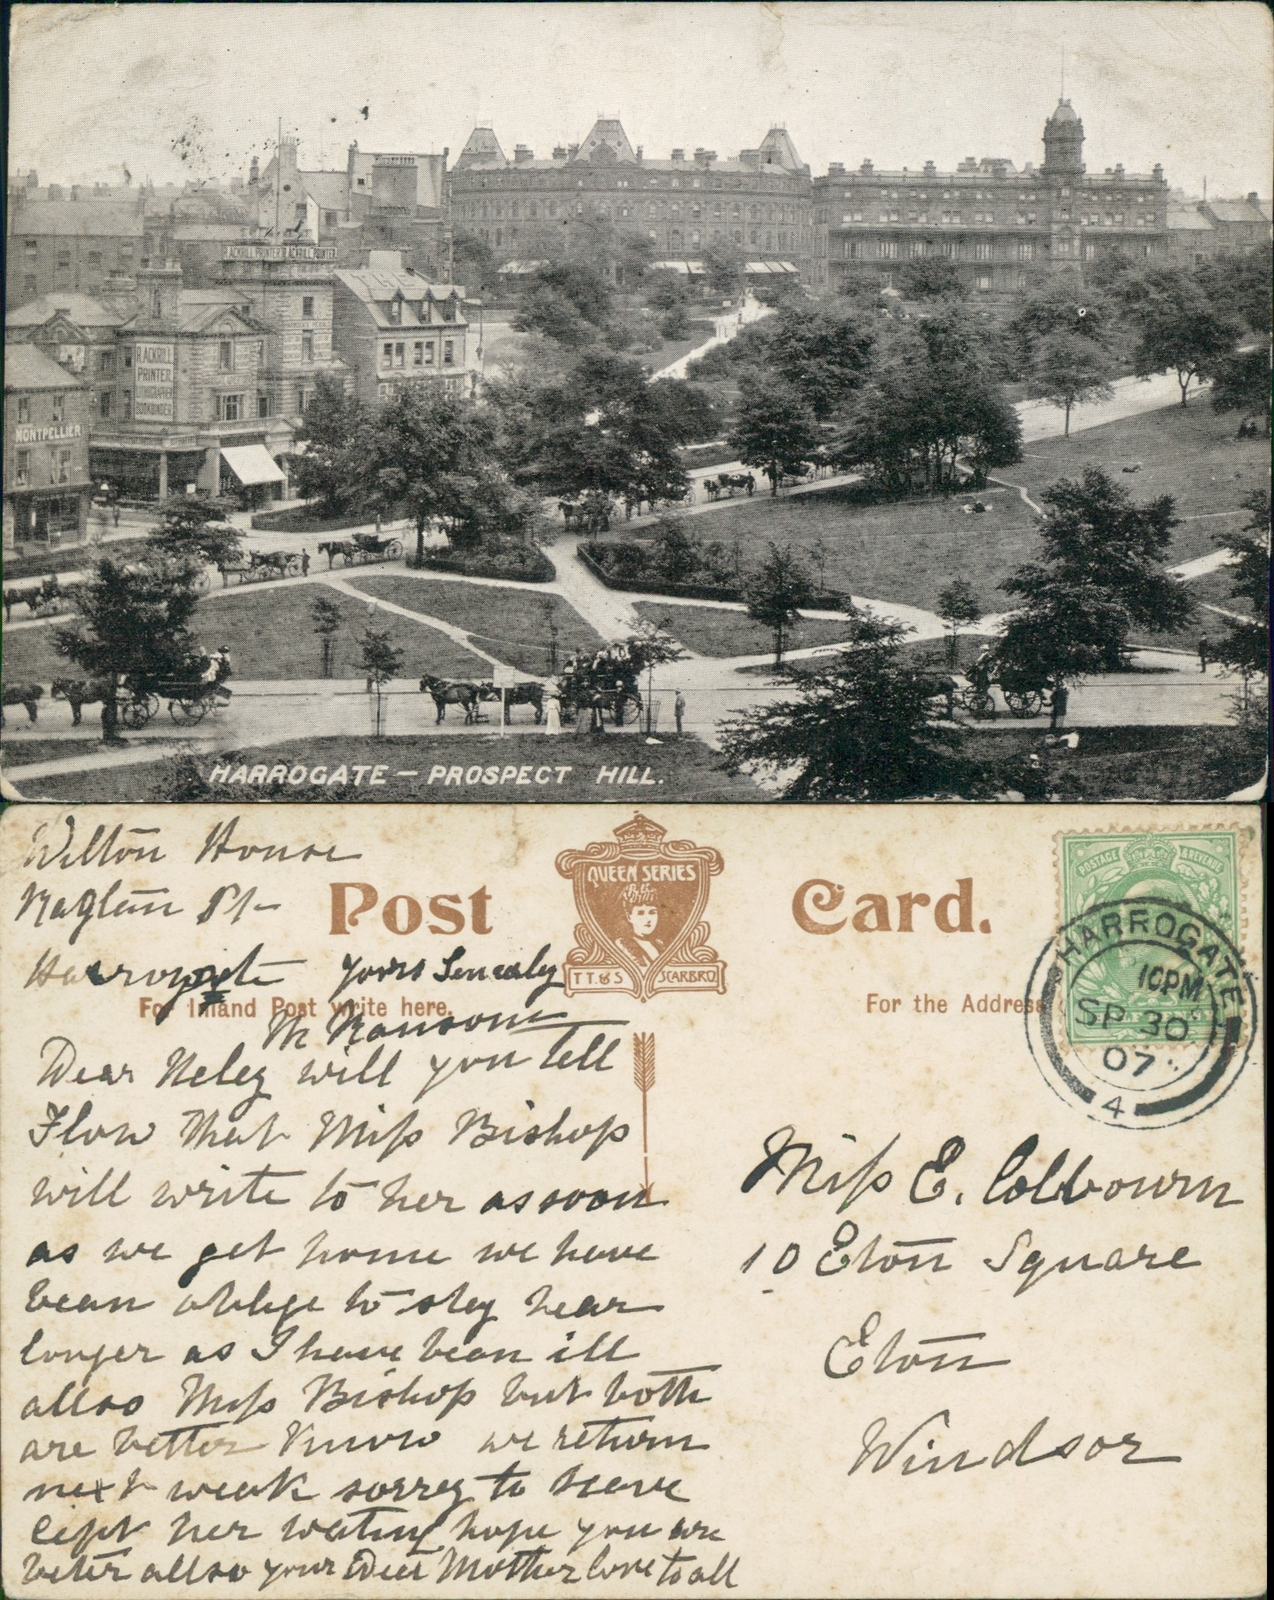 RACKRILL PRINTER
R. ACKRILL
PRINTER.
LITHOGRAPHER
BOOKBINDER
MONTPELLIER
HARROGATE – PROSPECT HILL.
Wilton House
Raglan St
Harrogate Yours Sencealey
M Ransome
Post Card.
QUEEN SERIES
T.T. & S SCARBRO
For Inland Post write here.
For the Address
POSTAGE & REVENUE
HARROGATE
10PM
SP 30
07
4
Dear Neley will you tell
Flow that Miss Bishop
will write to her as soon
as we get home we have
bean oblige to stey hear
longer as I have bean ill
allso Miss Bishop but both
are better know we return
next weak sorrey to heave
cept her wating hope you are
beter allso your Dear Mother love to all
Miss E. Colbourn
10 Eton Square
Eton
Windsor